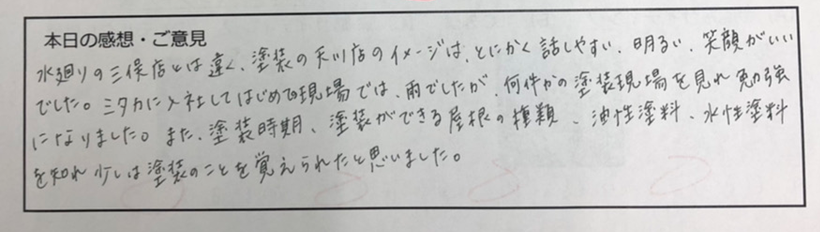 本日の感想・ご意見
水廻りの三保店とは違く、塗装の天川店のイメージは、とにかく話しやすい、明るい、笑顔がいい
でした。ミタカに入社してはじめての現場では、雨でしたが、何件かの塗装現場を見れ勉強
になりました。また、塗装時期、塗装ができる屋根の種類、油性塗料、水性塗料
を知れ少しは塗装のことを覚えられたと思いました。